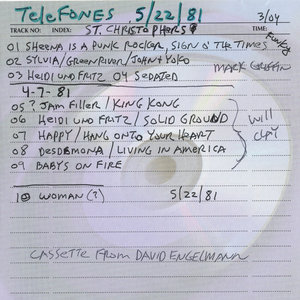 TELEFONES 5/22/81
TRACK NO: INDEX: ST. CHRISTOPHERS TIME: 3/04
01 SHEENA IS A PUNK ROCKER, SIGN O' THE TIMES
02 SYLVIA/GREEN RIVER/JOHN & YOKO MARK GRIFFIN
03 HEIDI UND FRITZ 04 SEDATED
4-7-81
05 ? JAM FILLER/KING KONG
06 HEIDI UND FRITZ/SOLID GROUND will
07 HAPPY/HANG ONTO YOUR HEART
08 DESDEMONA/LIVING IN AMERICA
09 BABYS ON FIRE
10 WOMAN (?) 5/22/81
CASSETTE FROM DAVID ENGELMANN